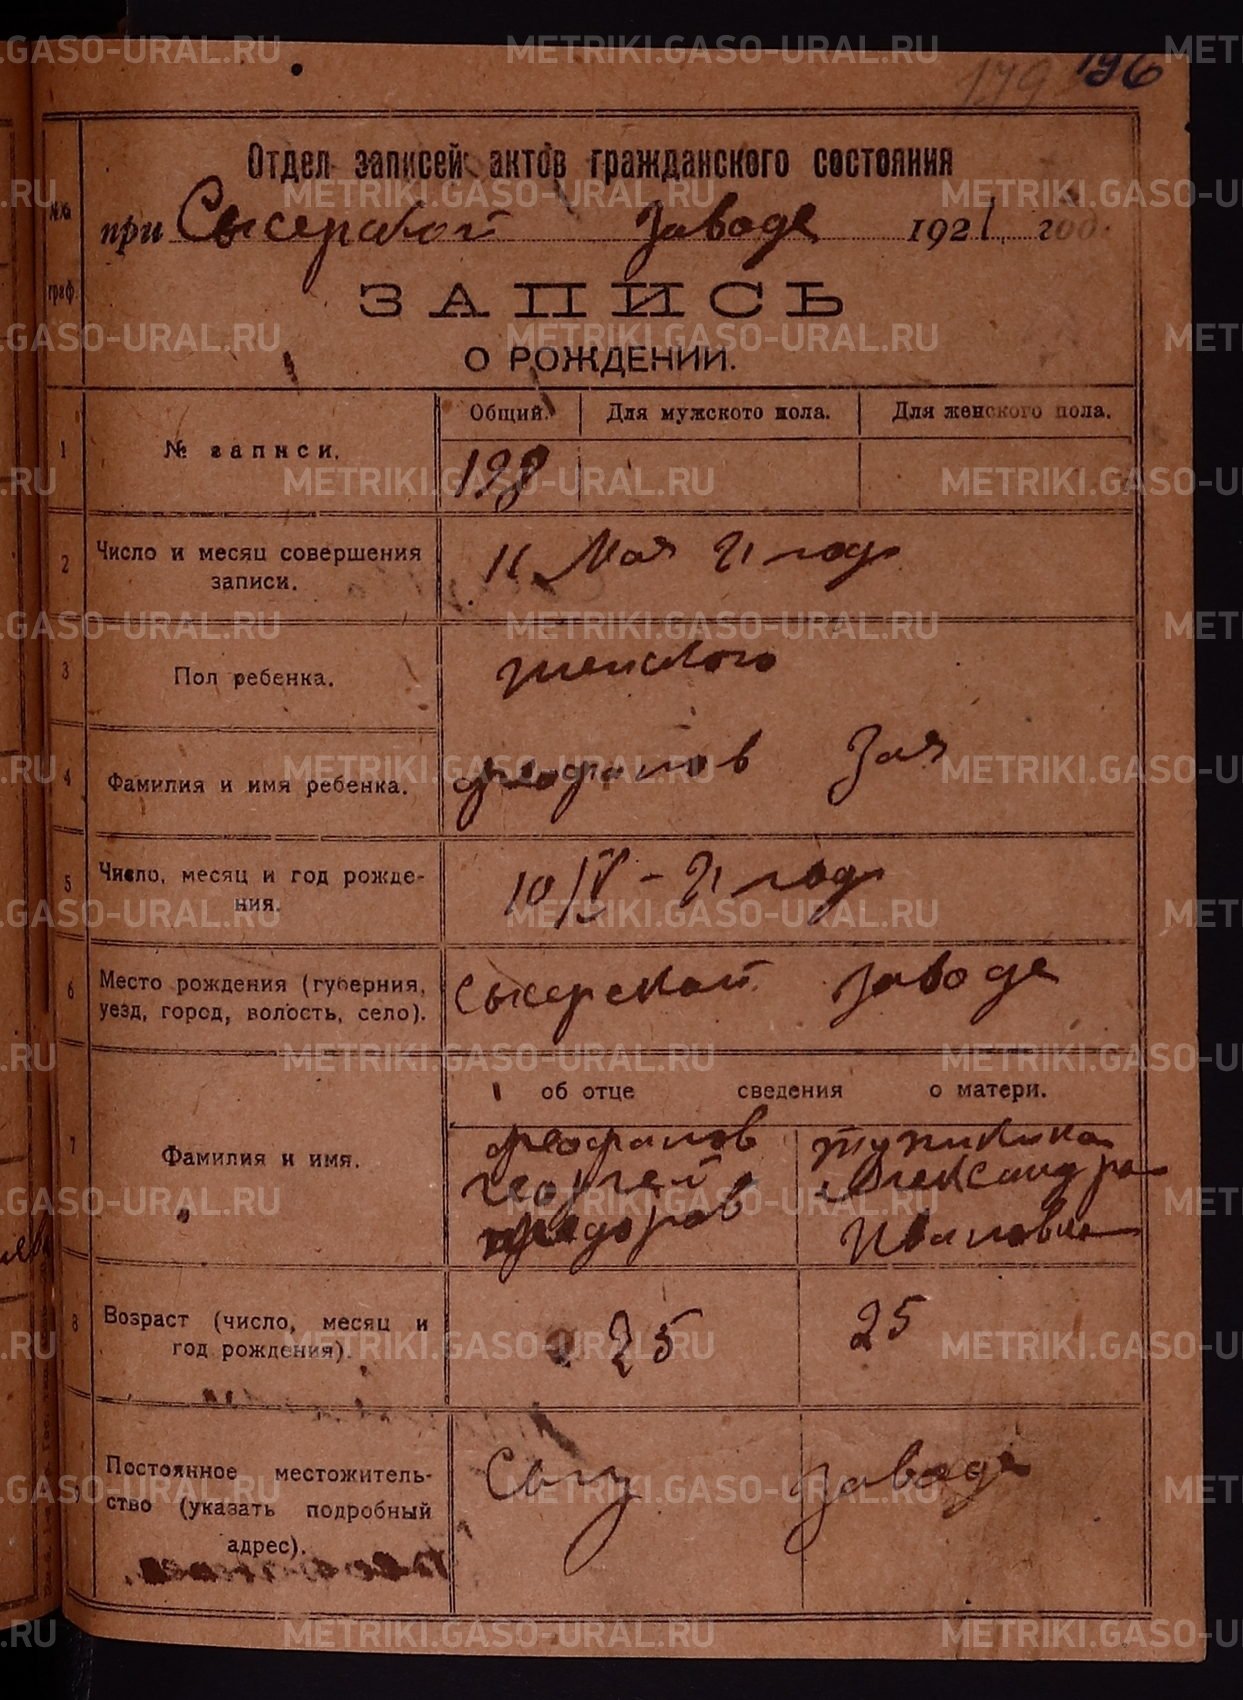 196
179
Отдел записей актов гражданского состояния
№№ граф.
при Сысерской Заводе 1921 год.
ЗАПИСЬ
О РОЖДЕНИИ.
Общий. Для мужского пола. Для женского пола.
1 № записи. 198
2 Число и месяц совершения записи. 11 Мая 21 года
3 Пол ребенка. женского
4 Фамилия и имя ребенка. феофанов Зоя
5 Число, месяц и год рожде-
ния. 10/V - 21 года
6 Место рождения (губерния,
уезд, город, волость, село). Сысерской заводе
об отце сведения о матери.
7 Фамилия и имя.
феофанов
георгей
федоров
тупикина
Александра
Ивановна
8 Возраст (число, месяц и
год рождения). 25 25
Постоянное местожитель-
ство (указать подробный
адрес). заводе
METRIKI.GASO-URAL.RU